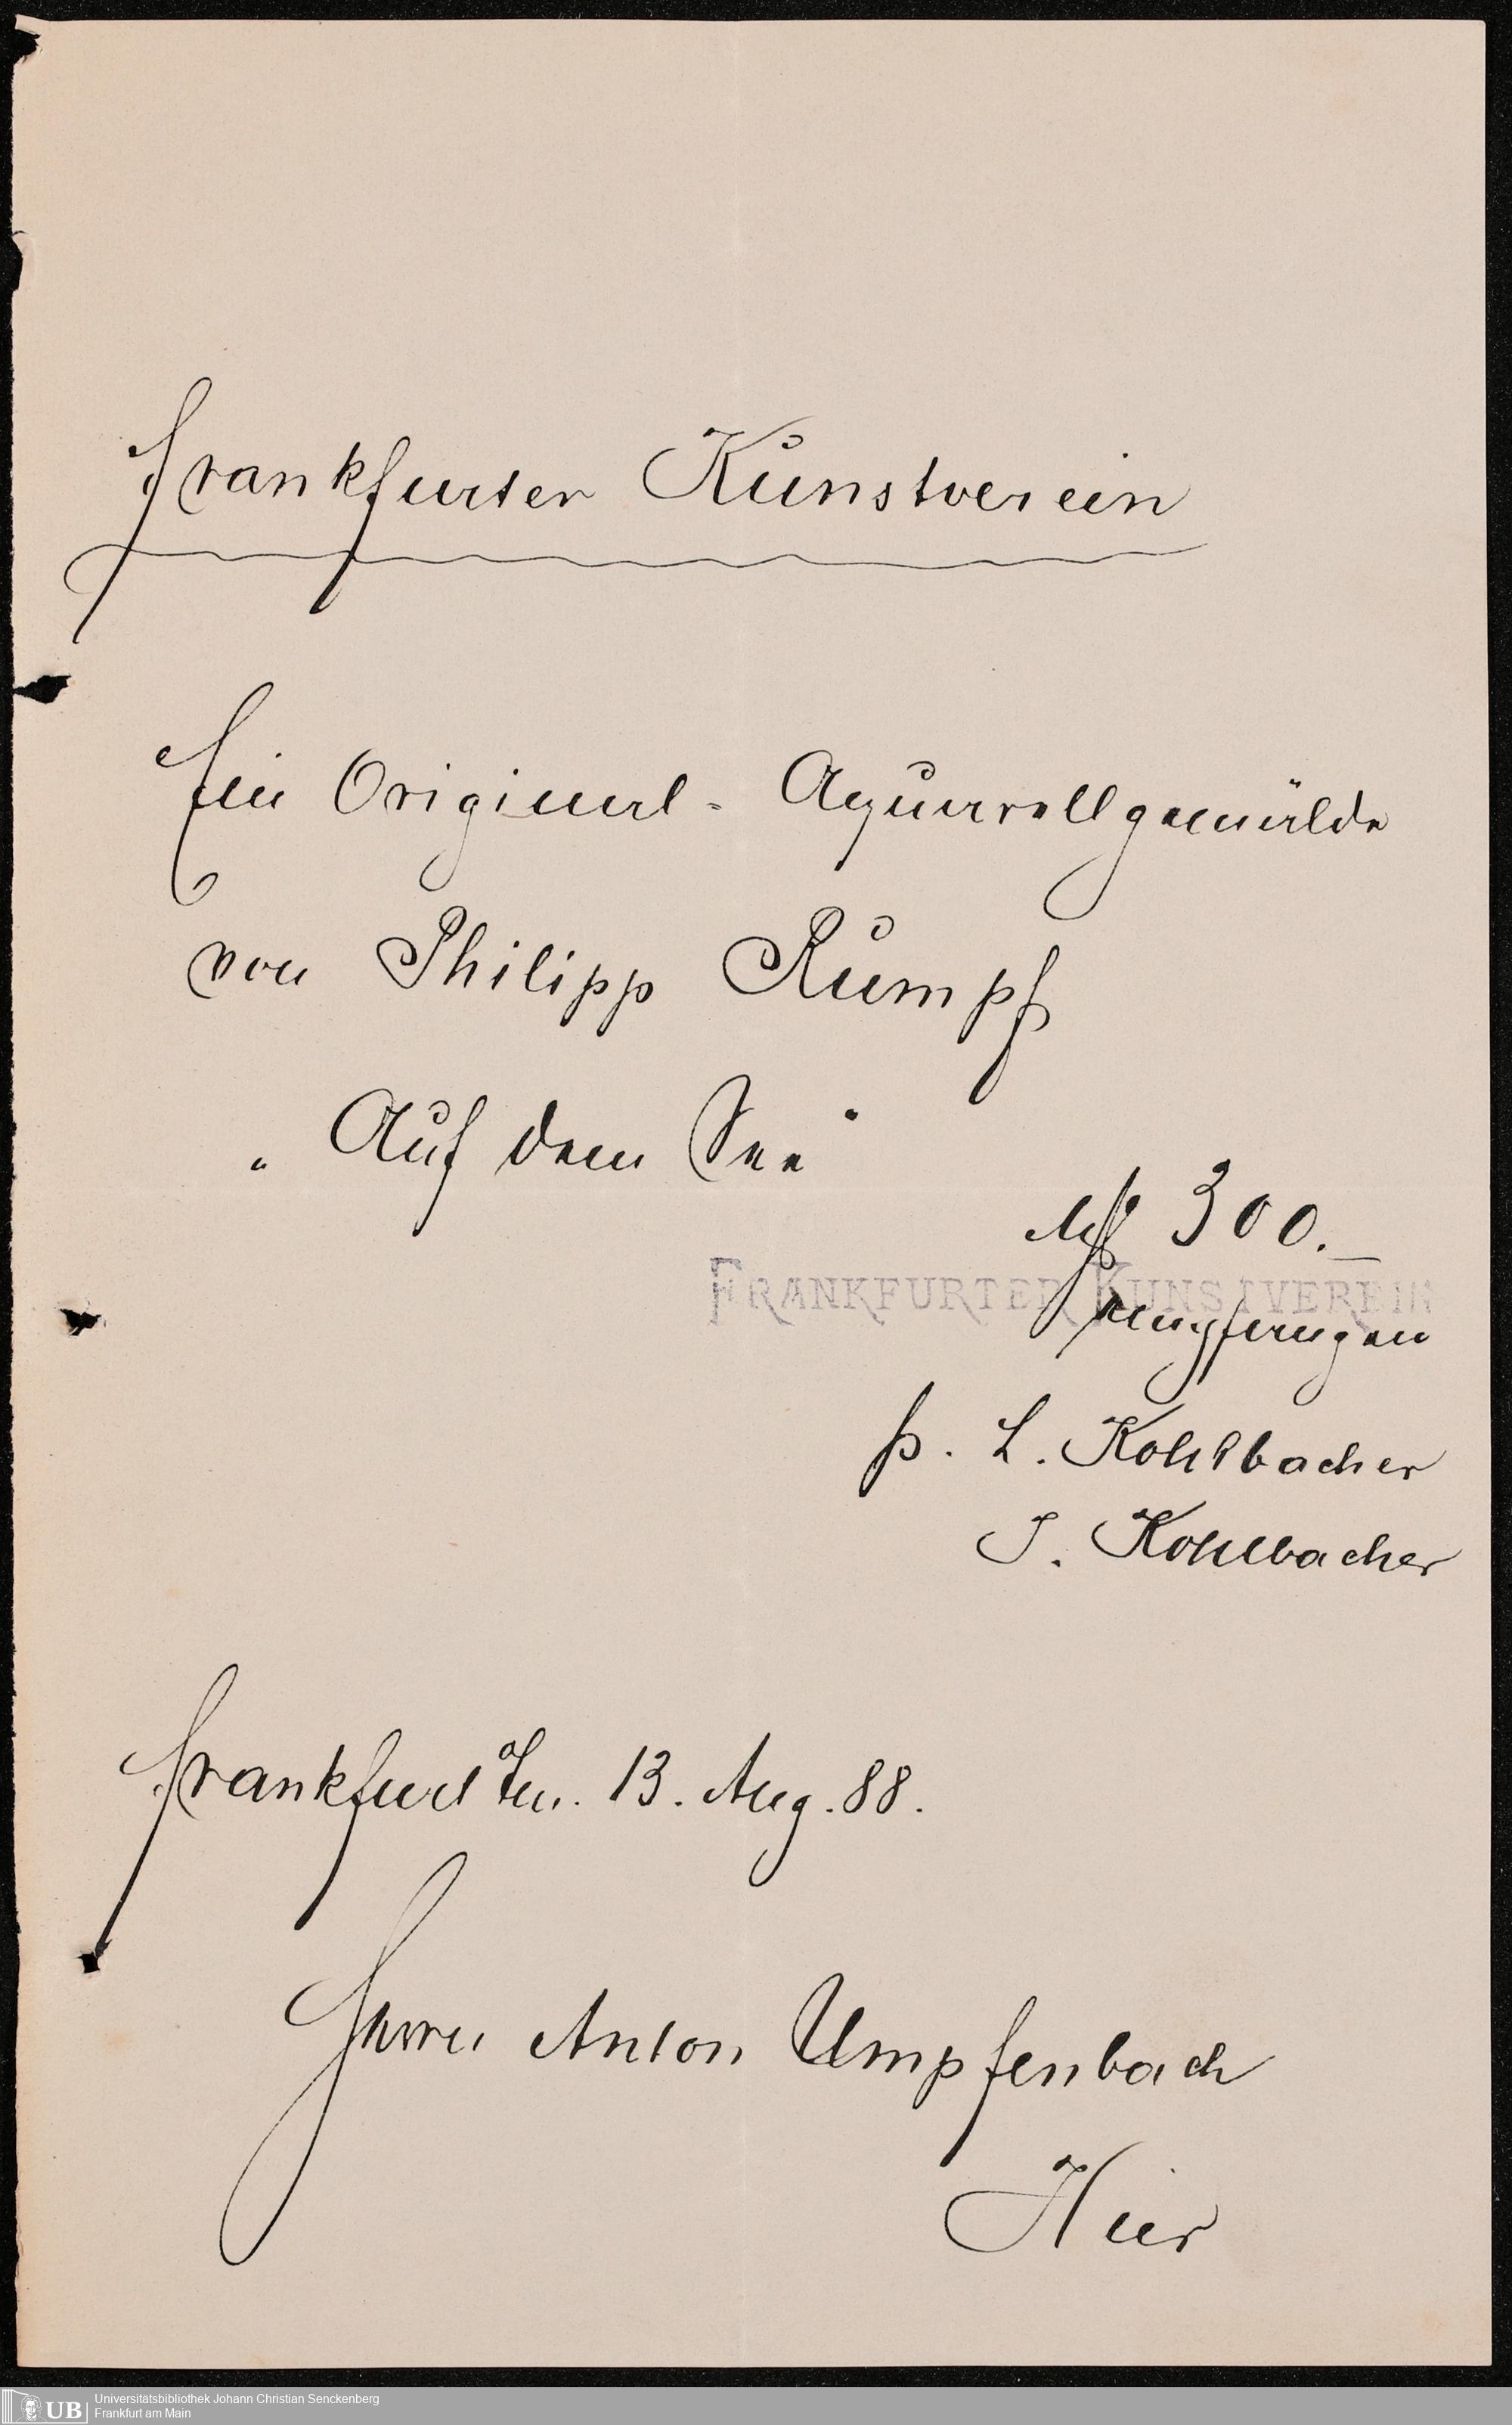 Frankfurter Kunstverein
Ein Original-Aquarellgemälde
von Philipp Rumpf
„Auf dem See"
M 300.—
FRANKFURTER KUNSTVEREIN
empfangen
p. L. Kohlbacher
J. Kohlbacher
Frankfurt a/m. 13. Aug. 88.
Herrn Anton Umpfenbach
Hier
UB
Universitätsbibliothek Johann Christian Senckenberg
Frankfurt am Main